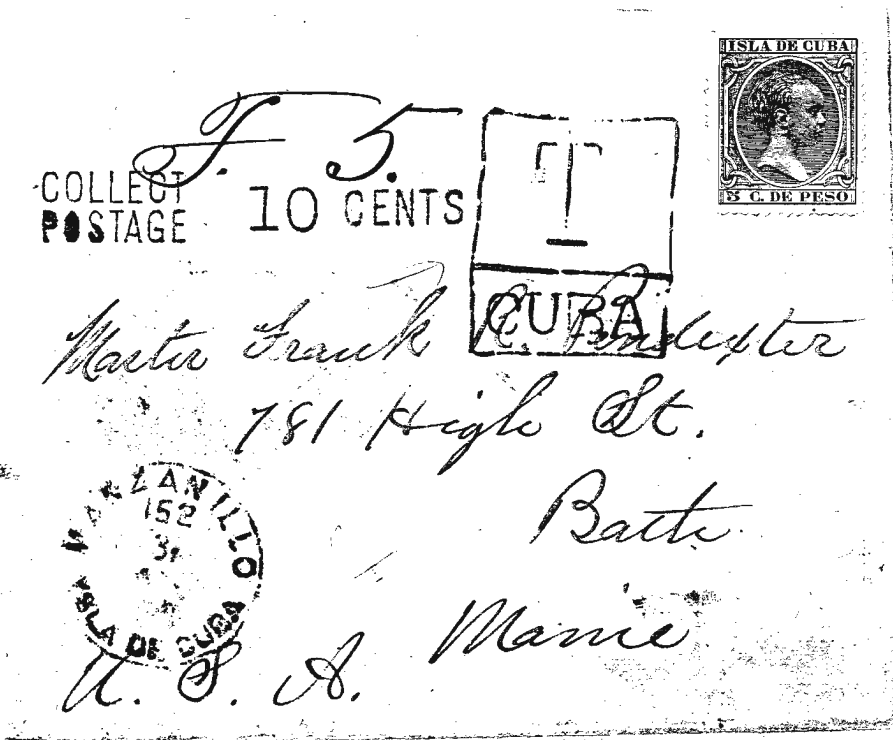 ISLA DE CUBA
5 C. DE PESO
T. 5.
COLLECT
POSTAGE
10 CENTS
T
CUBA
Master Frank Pendexter
781 High St.
Bath
Maine
U. S. A.
MANZANILLO
ISLA DE CUBA